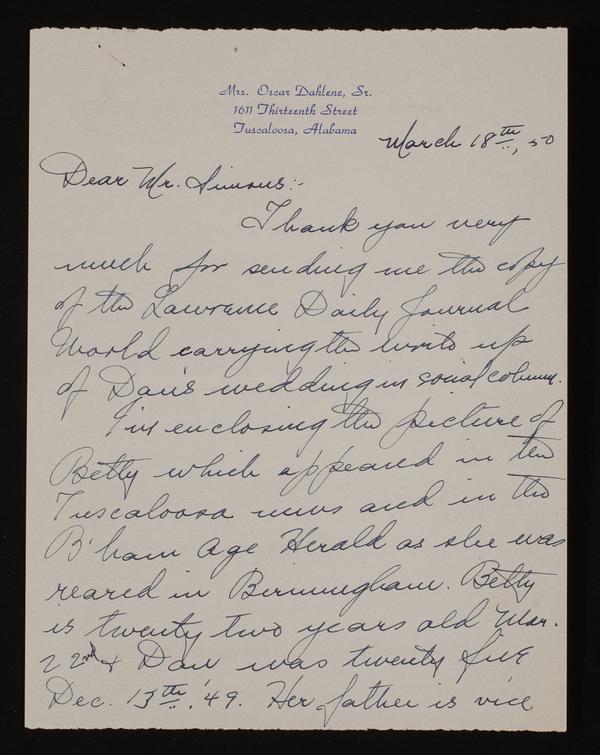 Mrs. Oscar Dahlene, Sr.
1611 Thirteenth Street
Tuscaloosa, Alabama
March 18th, 50
Dear Mr. Simons:-
Thank you very
much for sending me the copy
of the Lawrence Daily Journal
World carrying the write up
of Dan's wedding in social column.
I'm enclosing the picture of
Betty which appeared in the
Tuscaloosa news and in the
B'ham Age Herald as she was
reared in Birmingham. Betty
is twenty two years old Mar.
22nd & Dan was twenty five
Dec. 13th, '49. Her father is vice